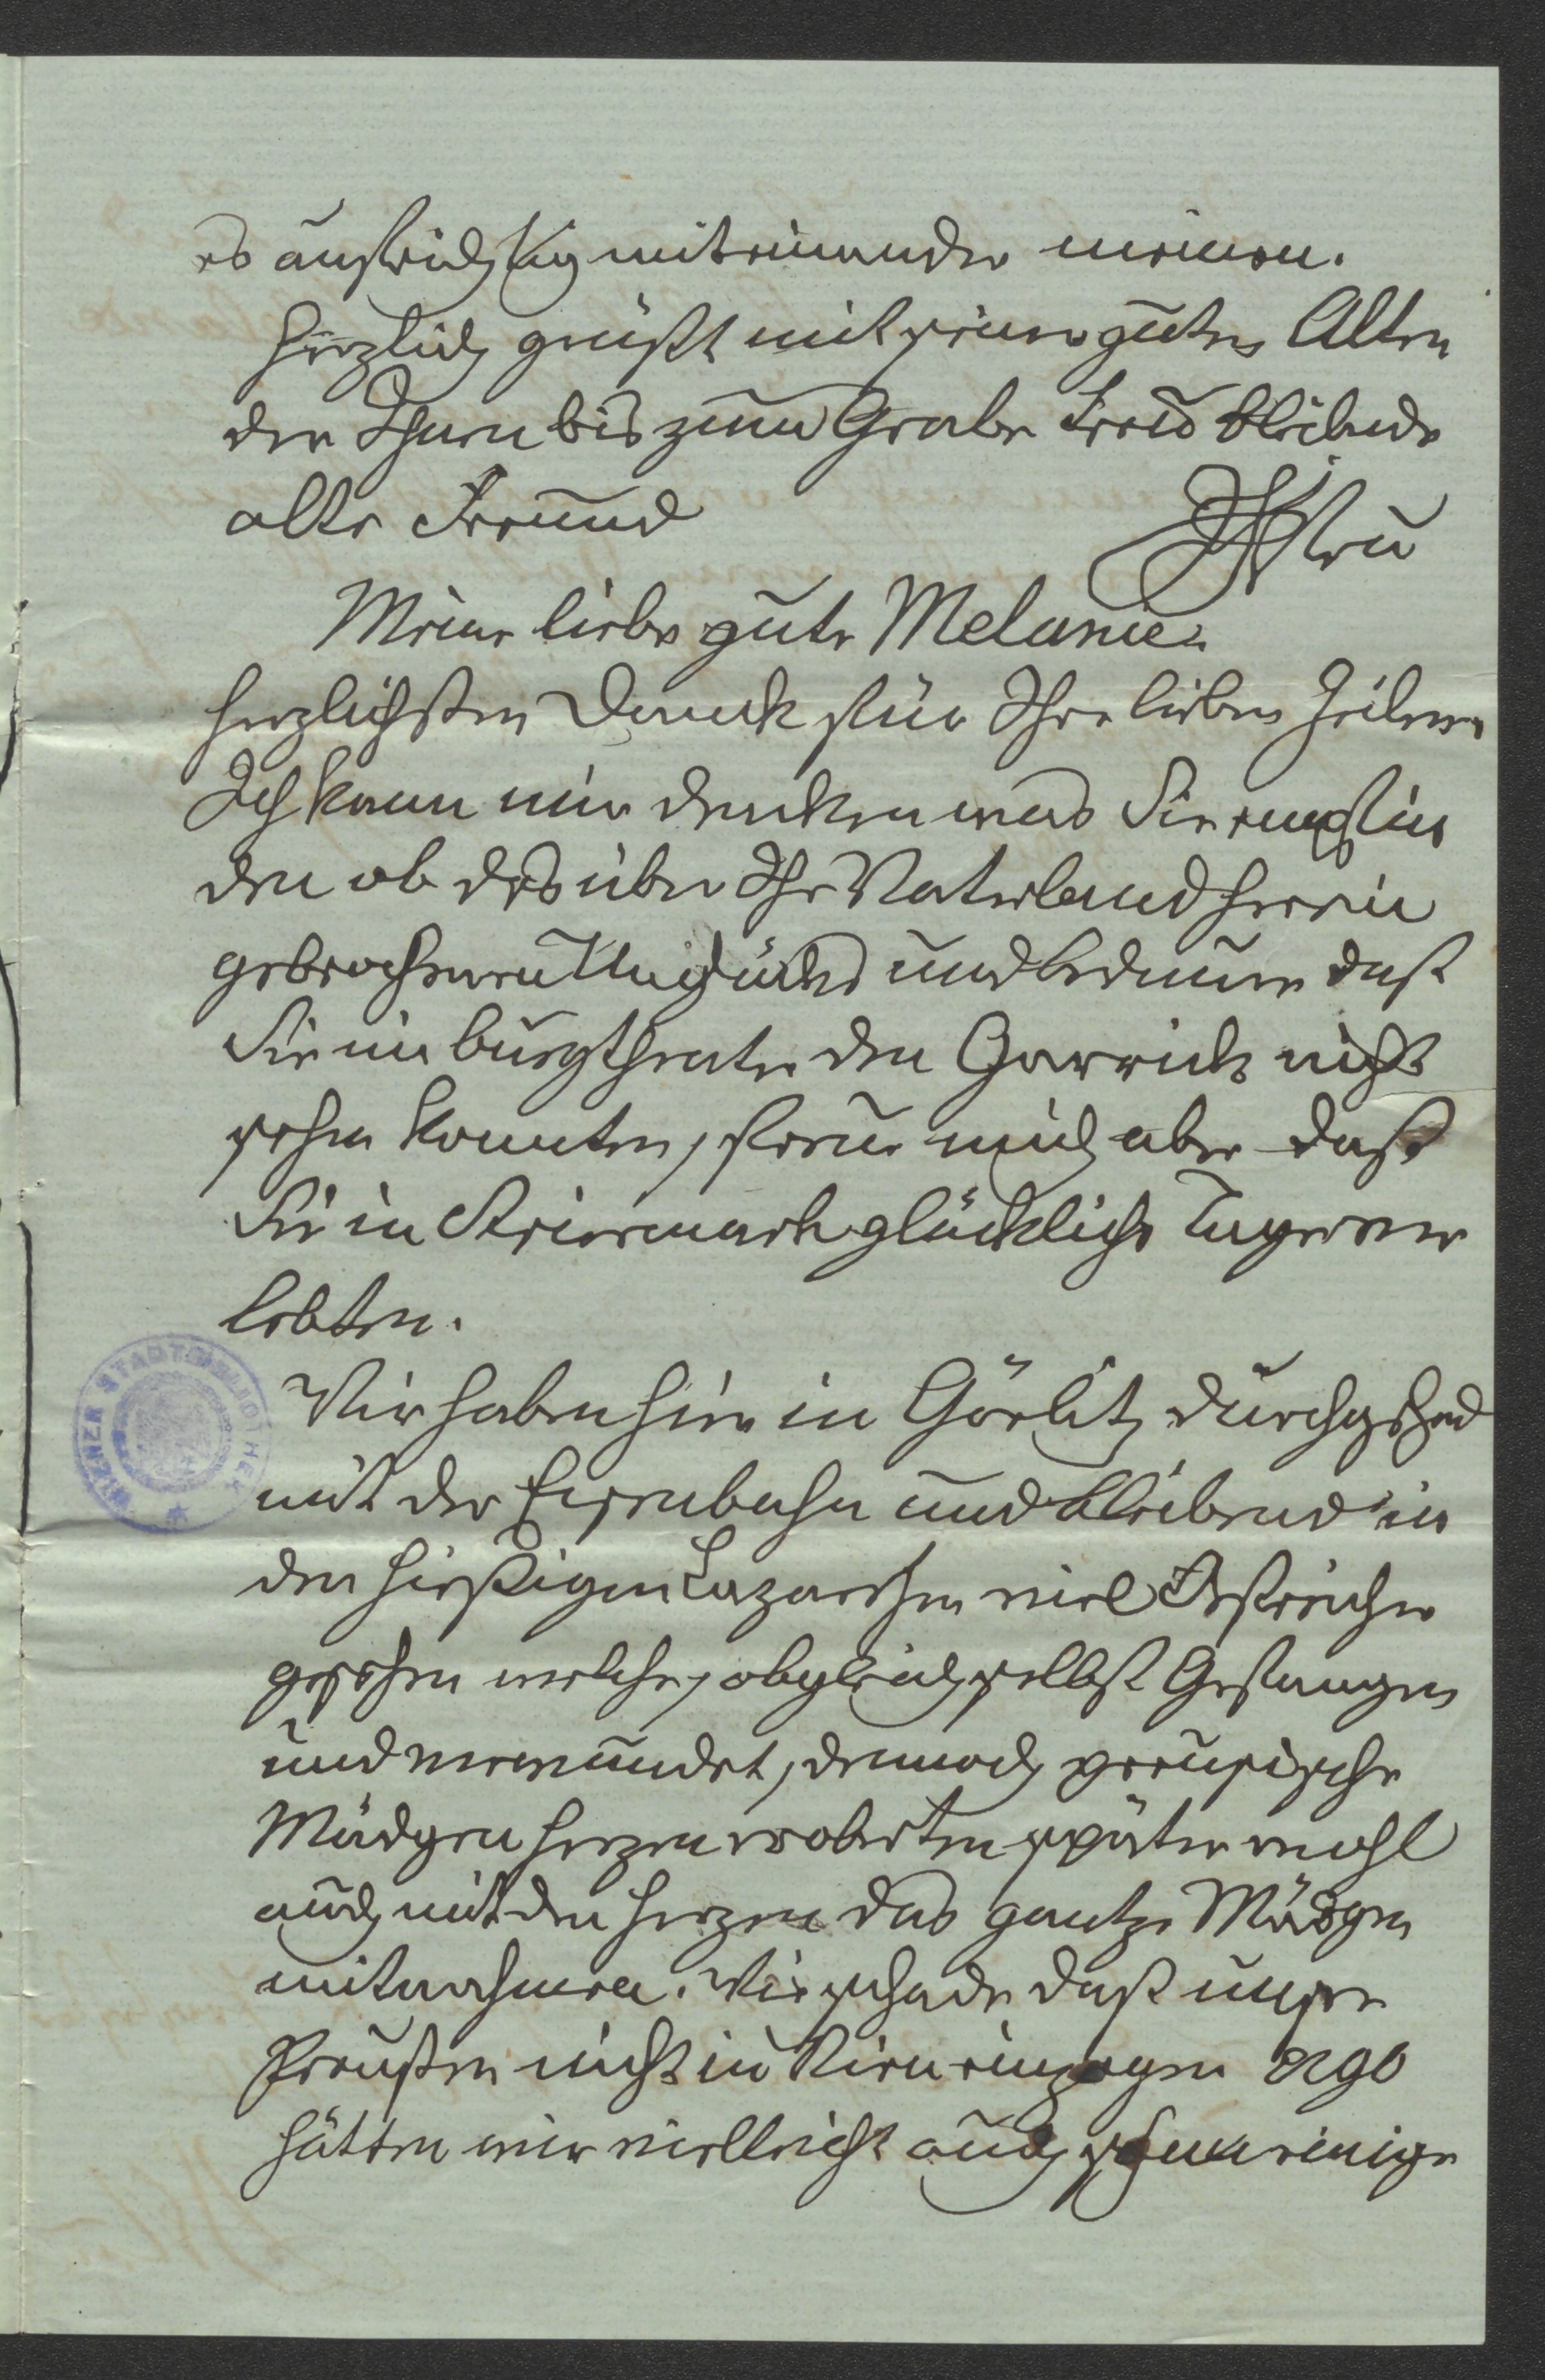 es aufrichtig mit einander meinen.
Herzlich grüßt mit seiner guten Alten
der Ihnen bis zum Grabe treu bleibende
alte Freund
Meine liebe gute Melanie.
Herzlichsten Danck für Ihre lieben Zeilen.
Ich kann mir denken was Sie empfin
den ob des über Ihr Vaterland herein
gebrochenen Unglücks und bedaure daß
Sie im Burgtheater den Garrick nicht
sehen konnten, freue mich aber daß
Sie in Steiermark glückliche Tage ver
lebten.
Wir haben hier in Görlitz durchgehend
mit der Eisenbahn und bleibend in
den hießigen Lazarethen viel Östreicher
gesehen welche, obgleich selbst Gefangen
und verwundet, dennoch preusische
Mädgen Herzen eroberten später wohl
auch mit den Herzen das gantze Mädgen
mitnahmen. Wie schade daß unsere
Preußen nicht in Wien einzogen ergo
hätten wir vielleicht auch schon einige
WIENER STADTBIBLIOTHEK